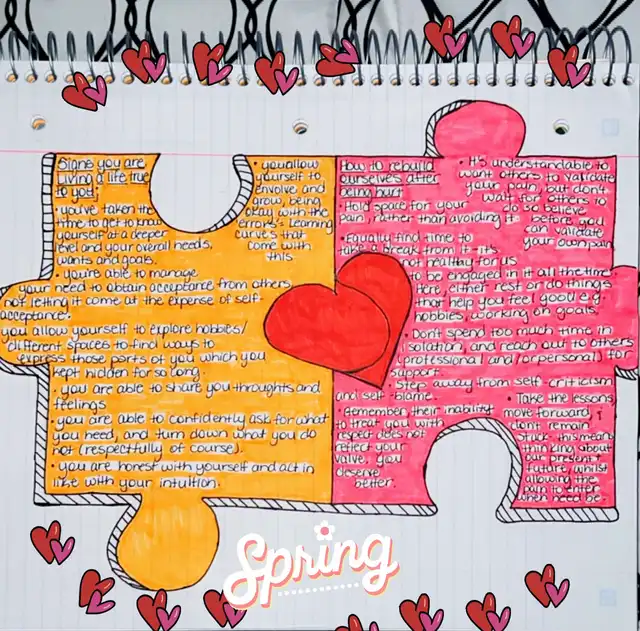 Signs you are
living a life true
to you:
• you've taken the
time to get to know
yourself at a deeper
level and your overall needs,
wants and goals.
• you're able to manage
your need to obtain acceptance from others,
not letting it come at the expense of self-
acceptance.
you allow yourself to explore hobbies/
different spaces to find ways to
express those parts of you which you
kept hidden for so long.
• you are able to share you thoughts and
feelings
• you are able to confidently ask for what
you need, and turn down what you do
not (respectfully of course).
• you are honest with yourself and act in
line with your intuition.
• you allow
yourself to
envolve and
grow, being
okay with the
errors + learning
curves that
come with
this.
How to rebuild
ourselves after
being hurt
• Hold space for your
pain, rather than avoiding it
• Equally find time to
take a break from it - it's
not healthy for us
to be engaged in it all the time.
Here, either rest or do things
that help you feel good e.g.
hobbies, working on goals.
• Don't spend too much time in
isolation, and reach out to others
(professional and/or personal) for
support.
• Step away from self-criticism
and self-blame.
• Remember their inability
to treat you with
respect does not
reflect your
value. you
deserve
better.
• It's understandable to
want others to validate
your pain, but don't
wait for others to
do so. Believe
before you
can validate
your own pain
• Take the lessons,
move forward,
don't remain
stuck. this means
thinking about
our present +
future, whilst
allowing the
pain to enter
when need be.
Spring